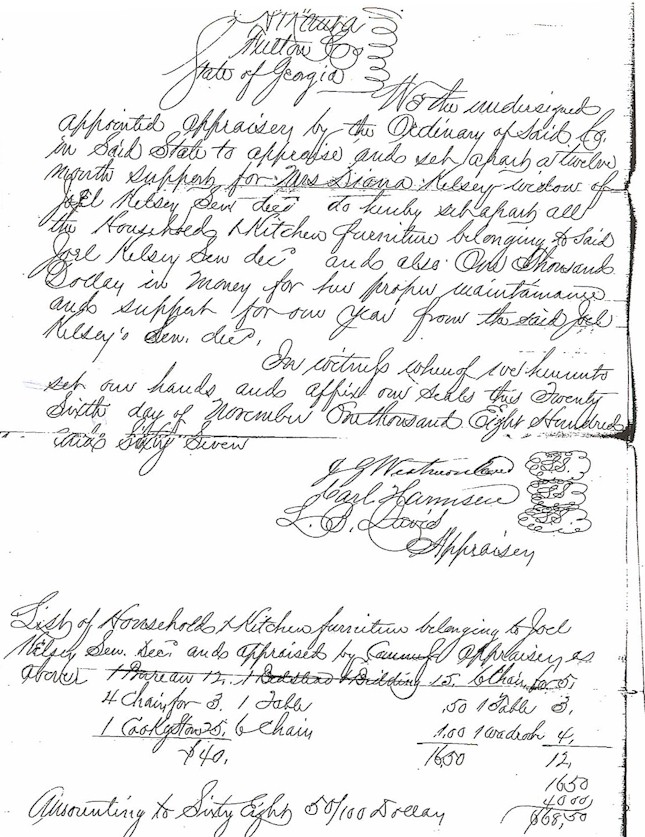 Atlanta
Fulton Co
State of Georgia
We the undersigned
appointed appraisers by the Ordinary of Said Co.
in Said State to appraise and set apart a twelve
month support for Mrs Diana Kelsey widow of
Joel Kelsey Sen decd do hereby set apart all
the Household & Kitchen furniture belonging to Said
Joel Kelsey Sen decd and also One thousand
Dollars in money for her proper maintainance
and support for one Year from the said Joel
Kelsey's Sen. decd.
In witness whereof we hereunto
set our hands and affix our seals this Twenty
Sixth day of November One thousand Eight Hundred
and sixty Seven
J G Westmoreland L.S.
Carl Harmsen L.S.
L. B. Davis L.S.
Appraisers
List of Household & Kitchen furniture belonging to Joel
Kelsey Sen. Decd and appraised by appraisers as
above 1 Bureau 12, 1 Bedstead & Bedding 15. 6 Chairs for 5.
4 Chairs for 3. 1 Table .50 1 Table 3.
1 Cookg Stove 25, 6 Chairs 1.00 1 wadrobe 4,
$40. 16.50 12,
16.50
40.00,
$68.50
Amounting to Sixty Eight 50/100 Dollars